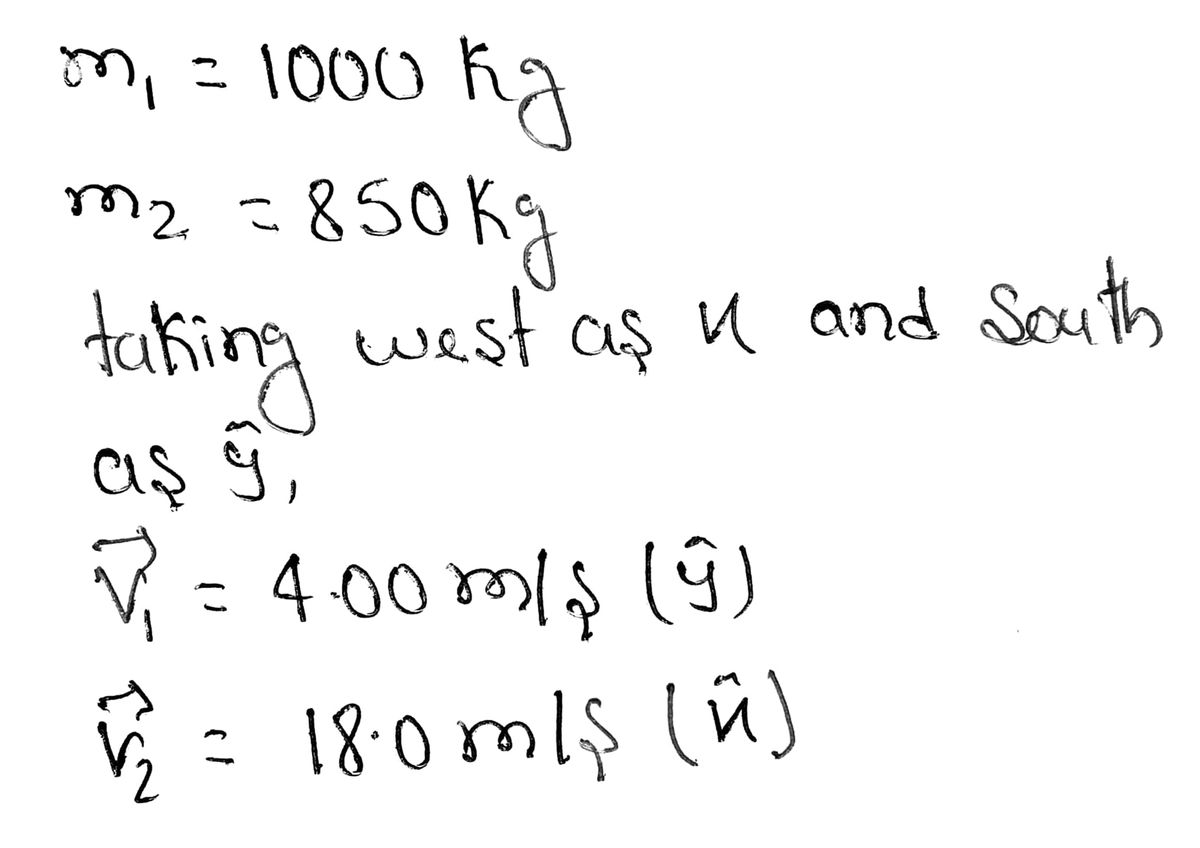 m₁ = 1000 Kg
m₂ = 850 Kg
taking west as x and South
as ŷ,
v⃗₁ = 4.00 m/s (ŷ)
v⃗₂ = 18.0 m/s (x̂)